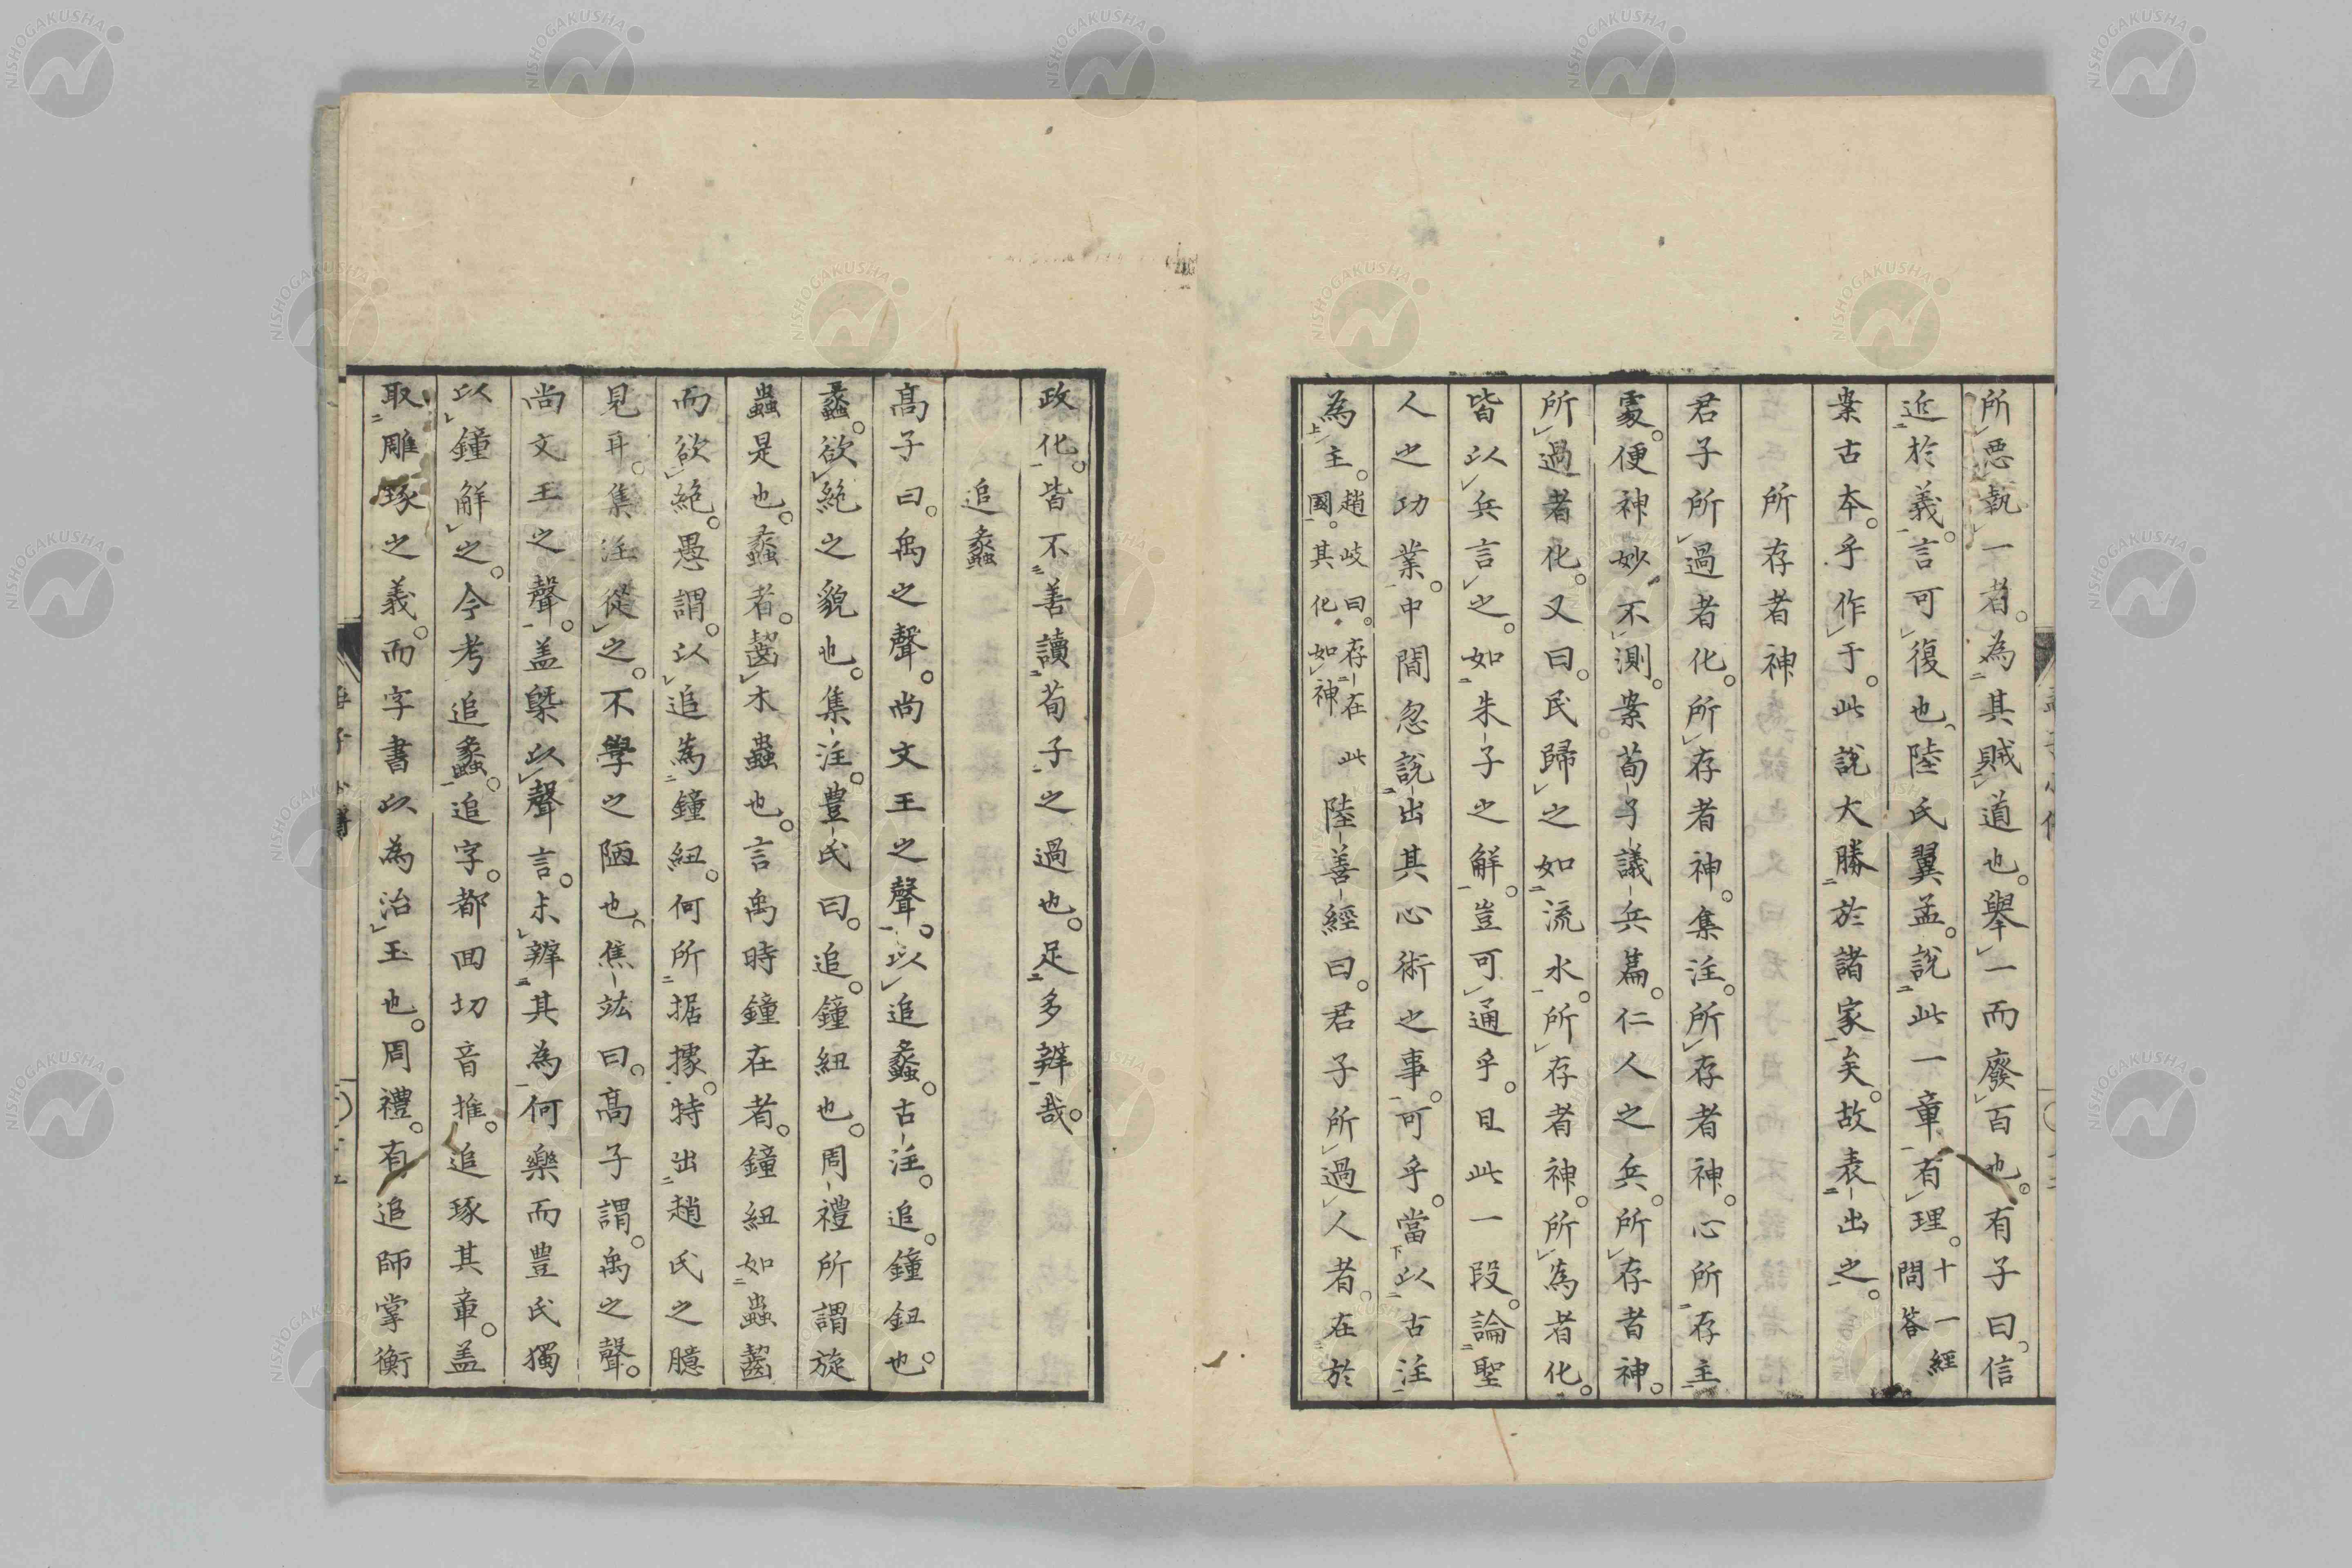 所惡執一者。為其賊道也。舉一而廢百也。有子曰。信
近於義。言可復也、陸氏翼孟。說此一章有理。十一經問答
案古本。乎作于。此說大勝於諸家矣。故表出之。
所存者神
君子所過者化。所存者神。集注。所存者神。心所存主
處。便神妙不測。案荀子議兵篇。仁人之兵。所存者神。
所過者化。又曰。民歸之如流水。所存者神。所為者化。
皆以兵言之。如朱子之解。豈可通乎。且此一段。論聖
人之功業。中間忽說出其心術之事。可乎。當以古注
為主。趙岐曰。存在此國。其化如神 陸善經曰。君子所過人者。在於
政化。皆不善讀荀子之過也。足多辨哉。
追蠡
高子曰。禹之聲。尚文王之聲。以追蠡。古注。追。鐘鈕也。
蠡。欲絕之貌也。集注。豊氏曰。追。鐘紐也。周禮所謂旋
蟲是也。蠡者。齧木蟲也。言禹時鐘在者。鐘紐如蟲齧
而欲絕。愚謂。以追為鐘紐。何所据據。特出趙氏之臆
見耳。集注從之。不學之陋也、焦竑曰。高子謂。禹之聲。
尚文王之聲。盖槩以聲言。未辨其為何樂而豊氏獨
以鐘解之。今考追蠡。追字。都回切音推。追琢其章。盖
取雕琢之義。而字書以為治玉也。周禮。有追師掌衡